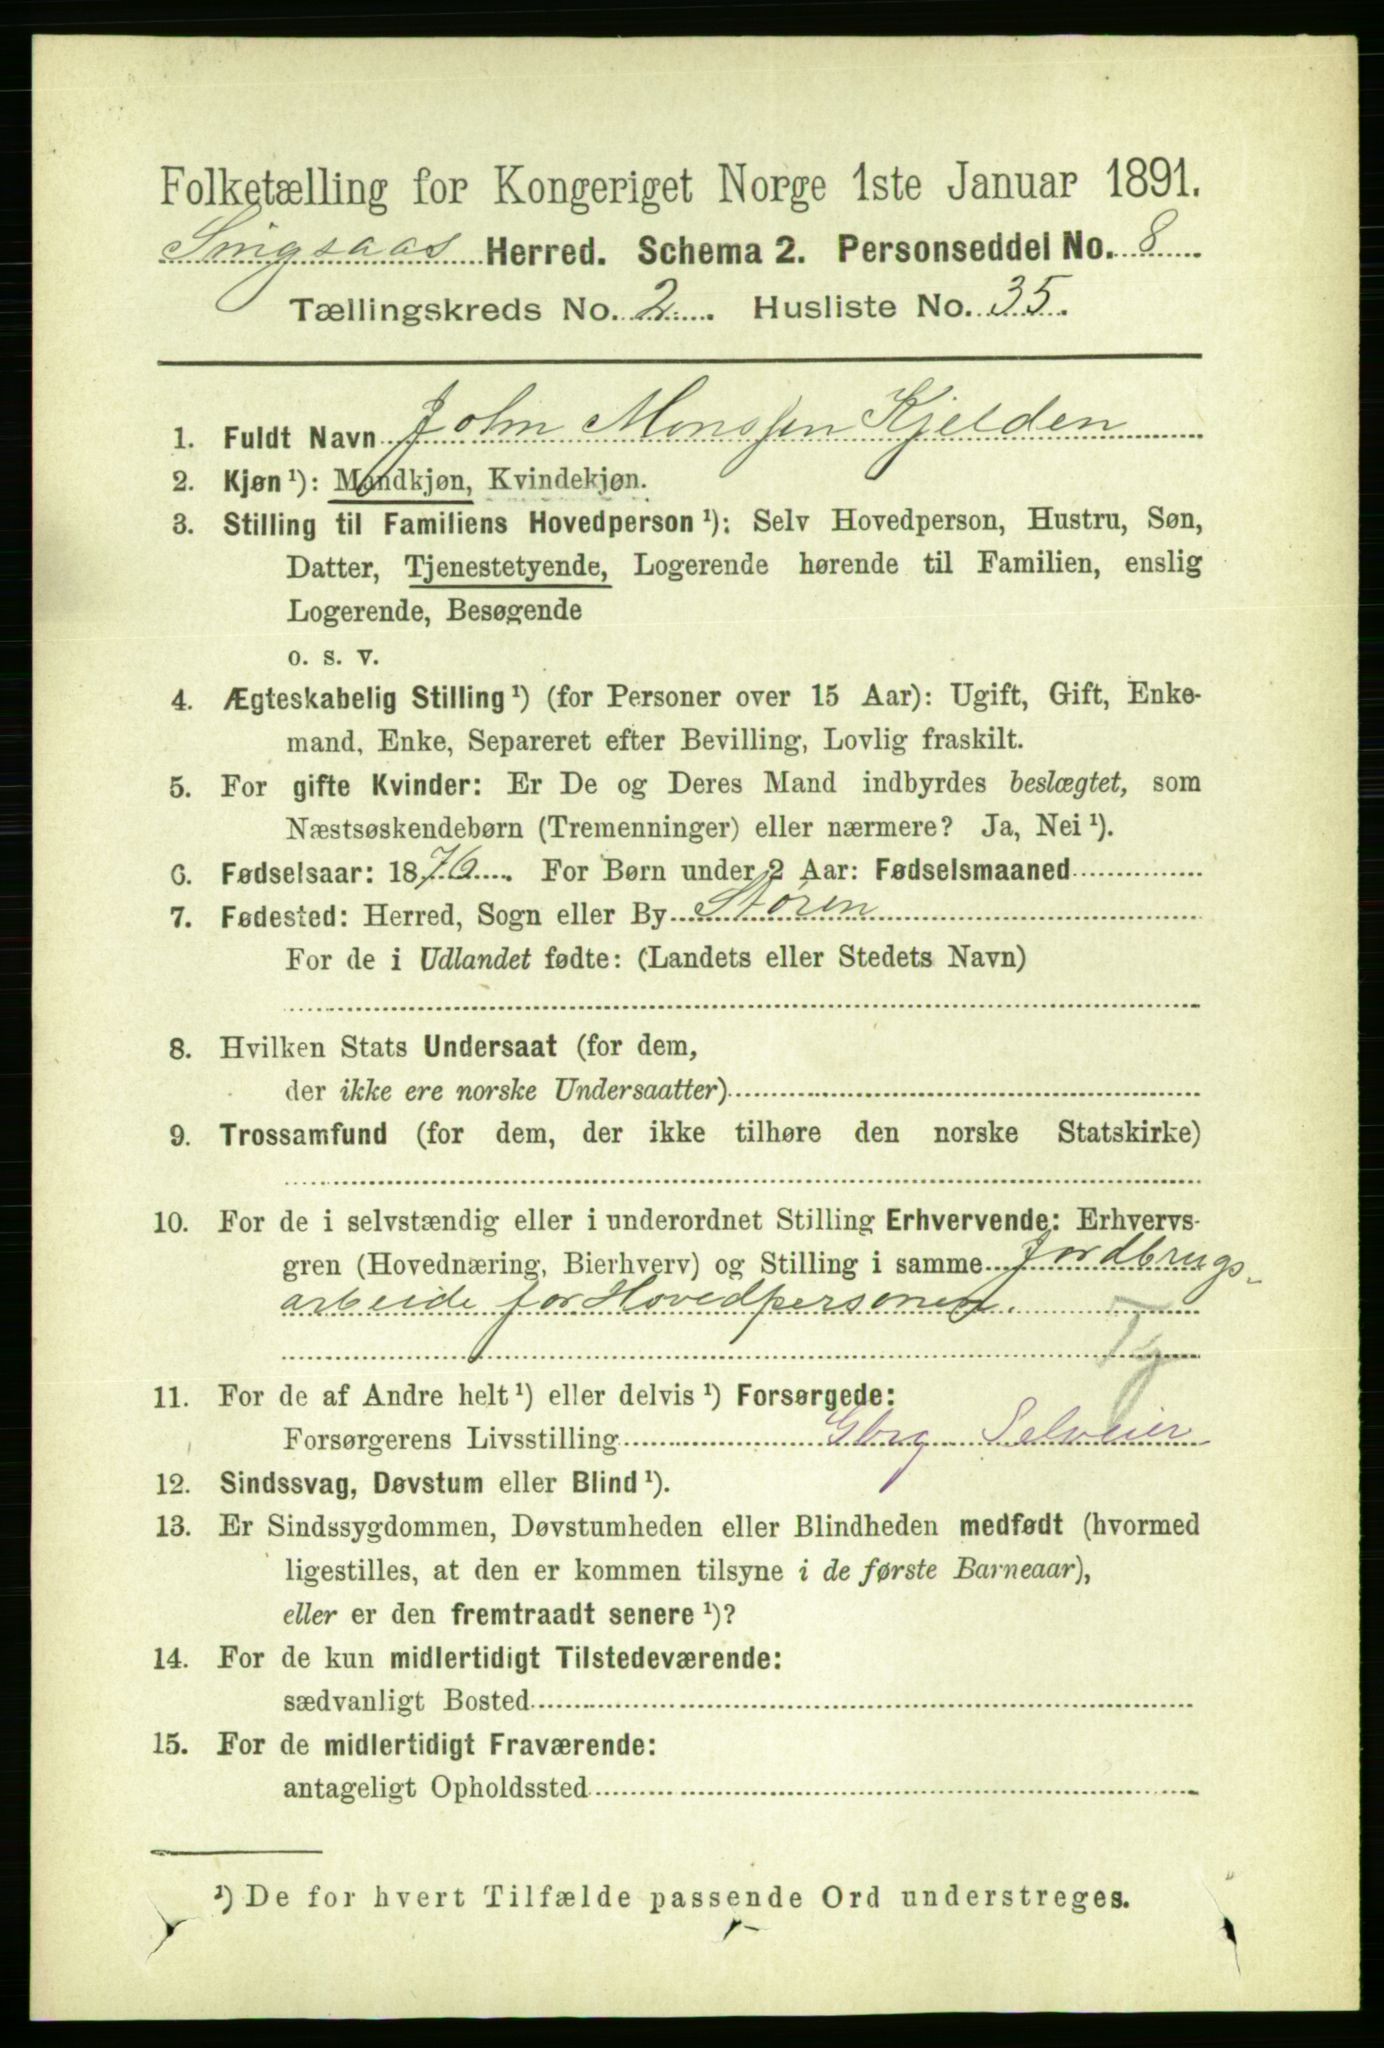 Folketælling for Kongeriget Norge 1ste Januar 1891.
Singsaas Herred. Schema 2. Personseddel No. 8
Tællingskreds No. 2 Husliste No. 35.
1. Fuldt Navn John Monssen Kjelden
2. Kjøn ¹): Mandkjøn, Kvindekjøn.
3. Stilling til Familiens Hovedperson ¹): Selv Hovedperson, Hustru, Søn,
Datter, Tjenestetyende, Logerende hørende til Familien, enslig
Logerende, Besøgende
o. s. v.
4. Ægteskabelig Stilling ¹) (for Personer over 15 Aar): Ugift, Gift, Enke-
mand, Enke, Separeret efter Bevilling, Lovlig fraskilt.
5. For gifte Kvinder: Er De og Deres Mand indbyrdes beslægtet, som
Næstsøskendebørn (Tremenninger) eller nærmere? Ja, Nei ¹).
6. Fødselsaar: 1876. For Børn under 2 Aar: Fødselsmaaned
7. Fødested: Herred, Sogn eller By Støren
For de i Udlandet fødte: (Landets eller Stedets Navn)
8. Hvilken Stats Undersaat (for dem,
der ikke ere norske Undersaatter)
9. Trossamfund (for dem, der ikke tilhøre den norske Statskirke)
10. For de i selvstændig eller i underordnet Stilling Erhvervende: Erhvervs-
gren (Hovednæring, Bierhverv) og Stilling i samme Jordbrugs-
arbeide for Hovedpersonen.
Ty
11. For de af Andre helt ¹) eller delvis ¹) Forsørgede:
Forsørgerens Livsstilling Gbrg Selveier
12. Sindssvag, Døvstum eller Blind ¹).
13. Er Sindssygdommen, Døvstumheden eller Blindheden medfødt (hvormed
ligestilles, at den er kommen tilsyne i de første Barneaar),
eller er den fremtraadt senere ¹)?
14. For de kun midlertidigt Tilstedeværende:
sædvanligt Bosted
15. For de midlertidigt Fraværende:
antageligt Opholdssted
¹) De for hvert Tilfælde passende Ord understreges.